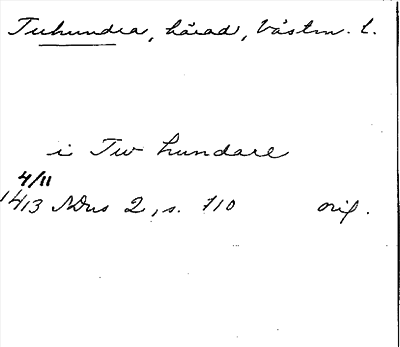 Tuhundra, härad, Västm. l.
i Tw hundare
4/11
1413 NDus 2, s. 710 orig.